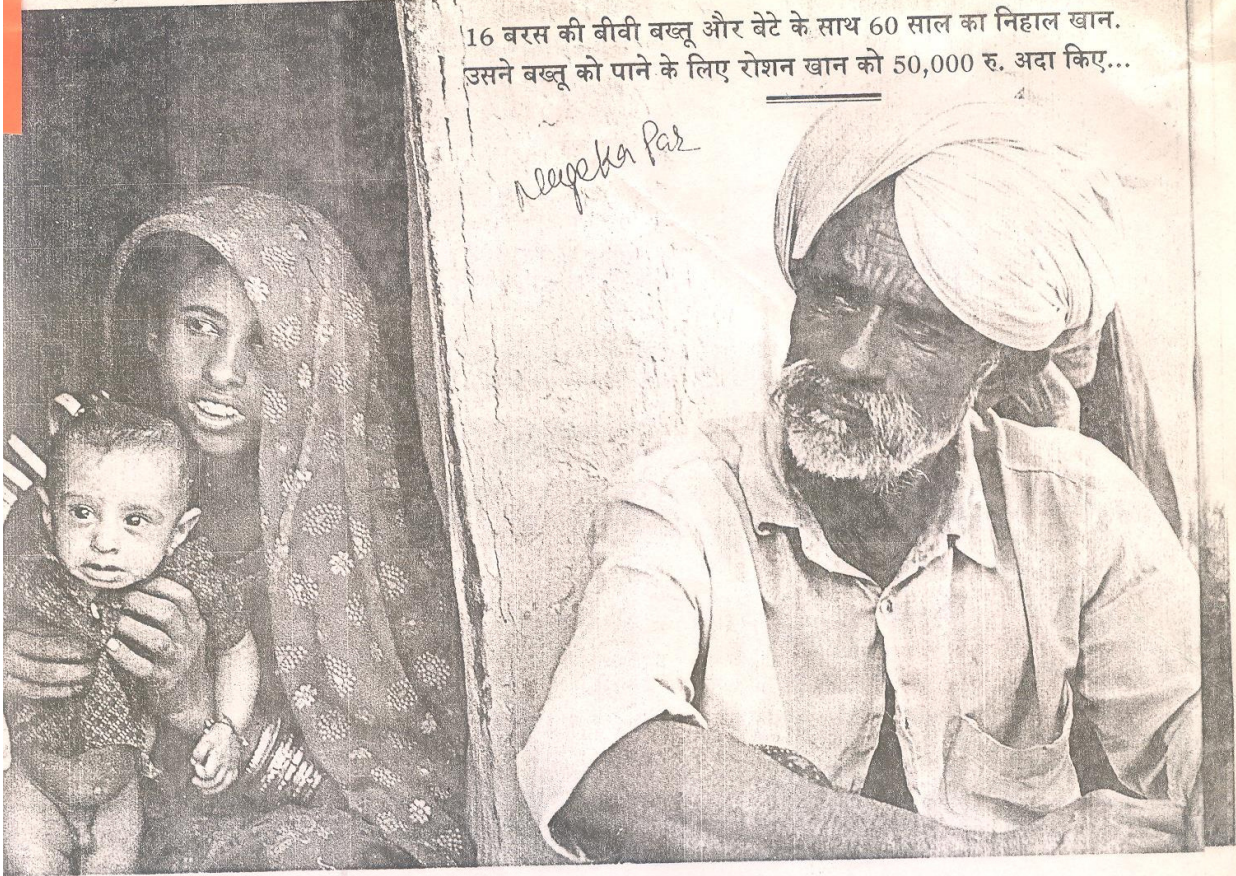 16 बरस की बीवी बख्तू और बेटे के साथ 60 साल का निहाल खान.
उसने बख्तू को पाने के लिए रोशन खान को 50,000 रु. अदा किए...